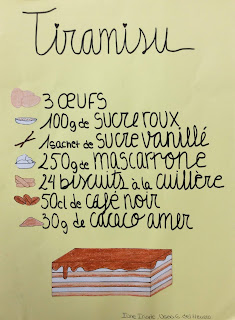 Tiramisu
3 ŒUFS
100g de SUCRE ROUX
1 sachet de SUCRE VANILLÉ
250g de MASCARRONE
24 biscuits à la cuillère
50cl de café noir
30g de cacaco amer